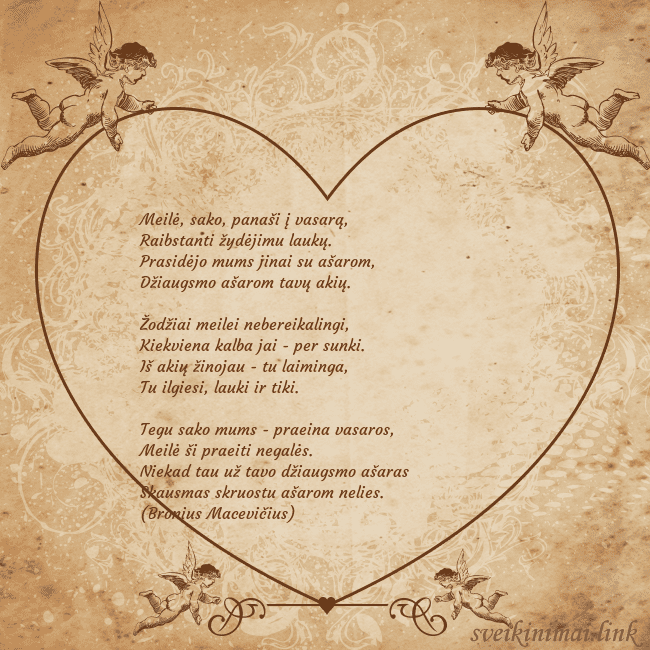 Meilė, sako, panaši į vasarą,
Raibstanti žydėjimu laukų.
Prasidėjo mums jinai su ašarom,
Džiaugsmo ašarom tavų akių.

Žodžiai meilei nebereikalingi,
Kiekviena kalba jai - per sunki.
Iš akių žinojau - tu laiminga,
Tu ilgiesi, lauki ir tiki.

Tegu sako mums - praeina vasaros,
Meilė ši praeiti negalės.
Niekad tau už tavo džiaugsmo ašaras
Skausmas skruostu ašarom nelies.
(Bronius Macevičius)
sveikinimai.link